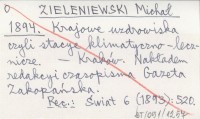 0 ZIELENIEWSKI Michał
1894. Krajowe uzdrowiska
czyli stacye klimatyczno-lecz-
nicze. — Kraków. Nakładem
redakcyi czasopisma Gazeta
Zakopańska.
Rec.: Świat 6 (1893): 520.